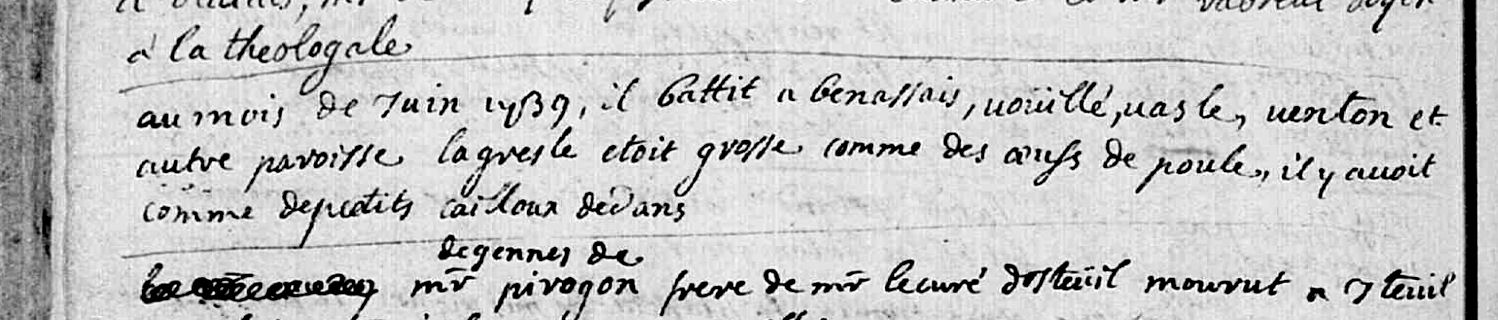 a la theologale
au mois de Juin 1739, il battit a benassais, uouillé, uasle, uenton et
autre paroisse la gresle etoit grosse comme des œufs de poule, il y auoit
comme de petits cailloux dedans
degennes de
mr pirogon frere de mr le curé dosteüil mourut a Iteuil